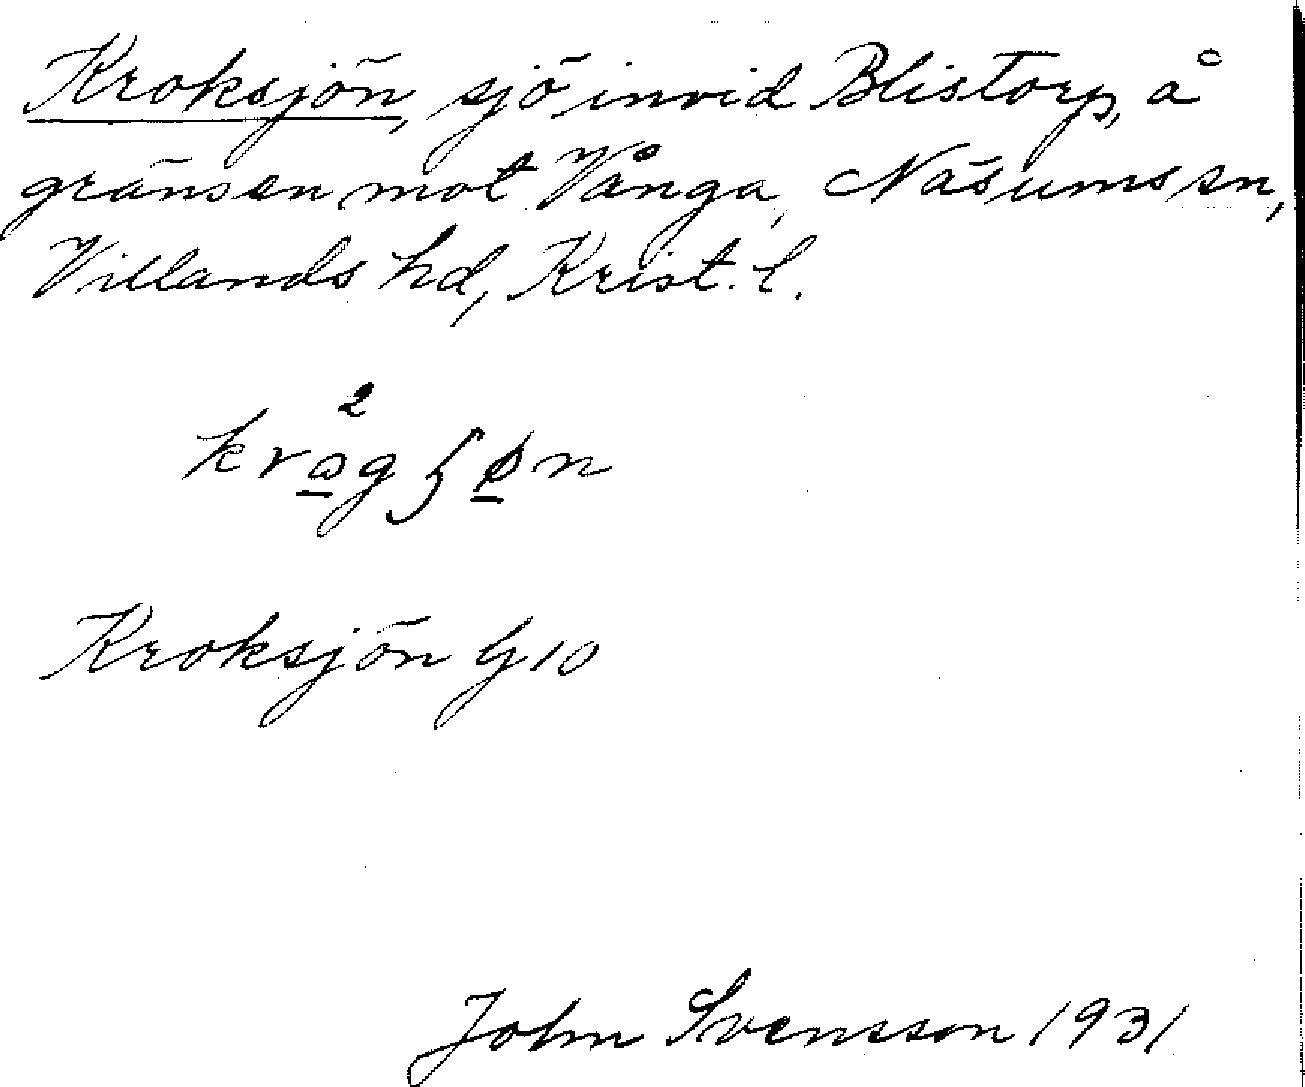 Kroksjön, sjö invid Blistorp, å
gränsen mot Vånga, Näsums sn,
Villands hd, Krist. l.
Kroksjön G10
John Svensson 1931